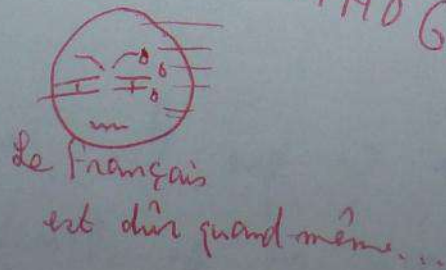 Le Français
est dûr quand même...